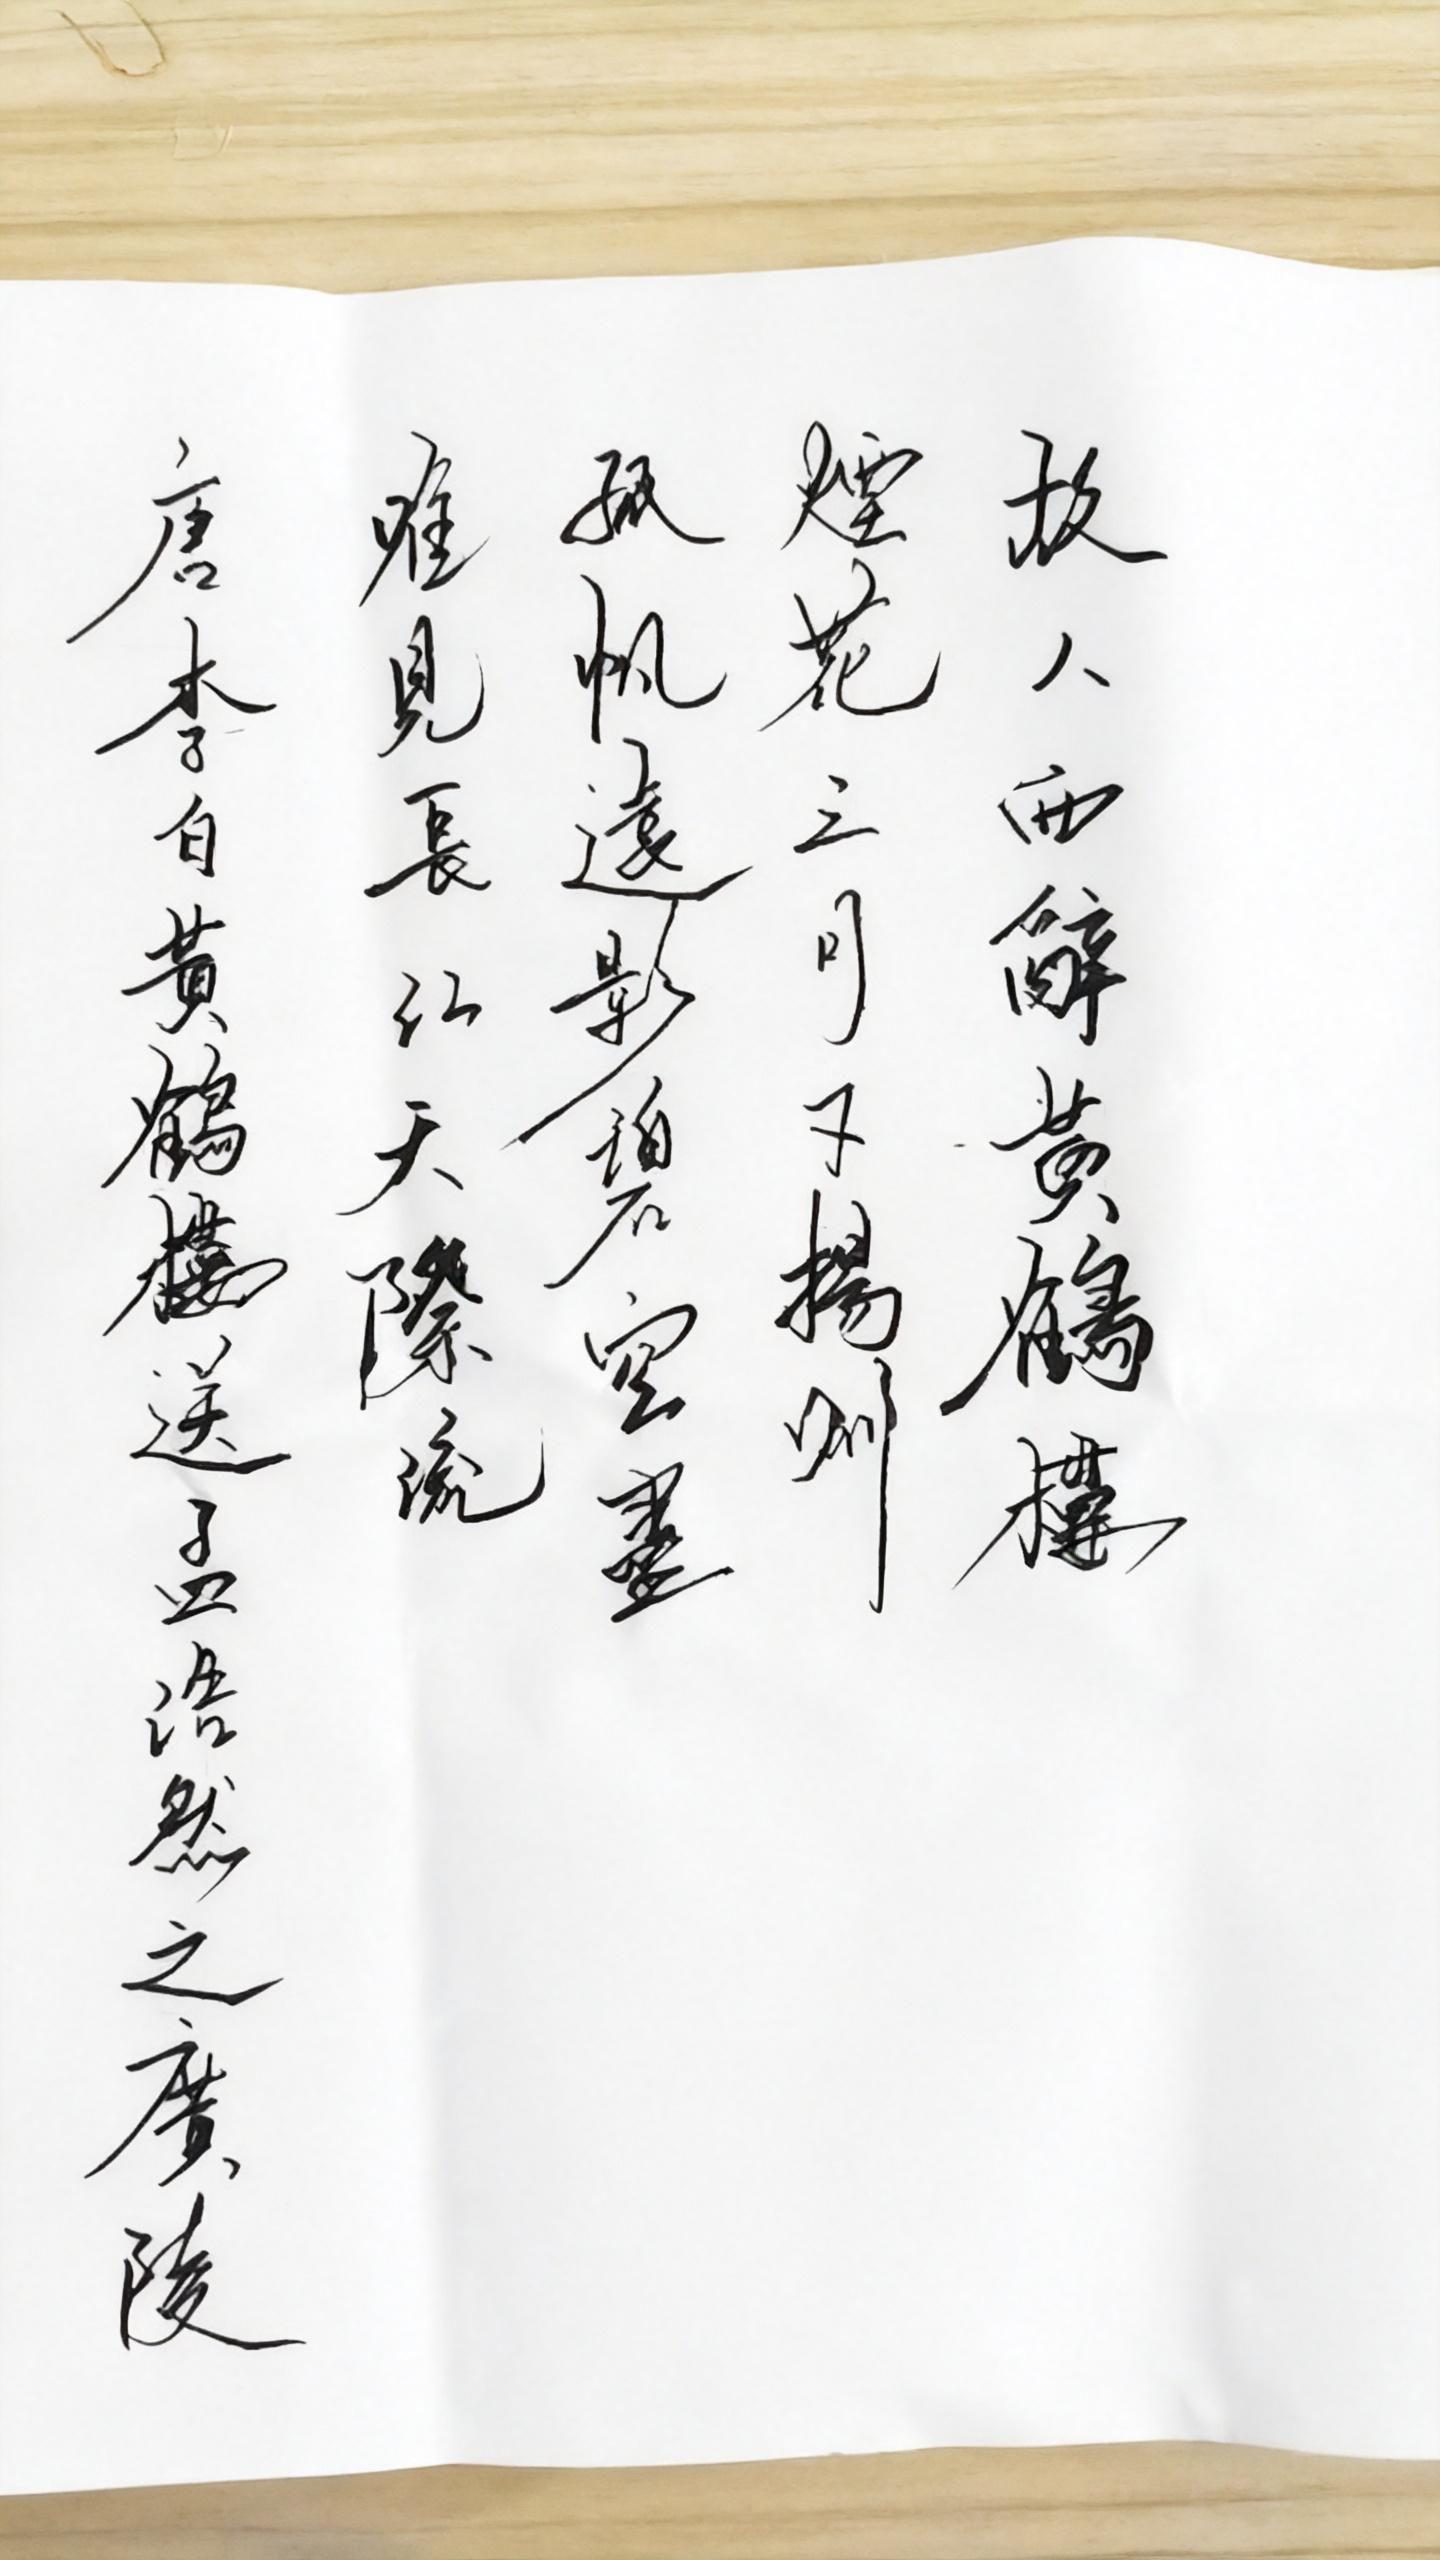 故人西辭黃鶴樓
煙花三月下揚州
孤帆遠影碧空盡
唯見長江天際流
唐李白黃鶴樓送孟浩然之廣陵